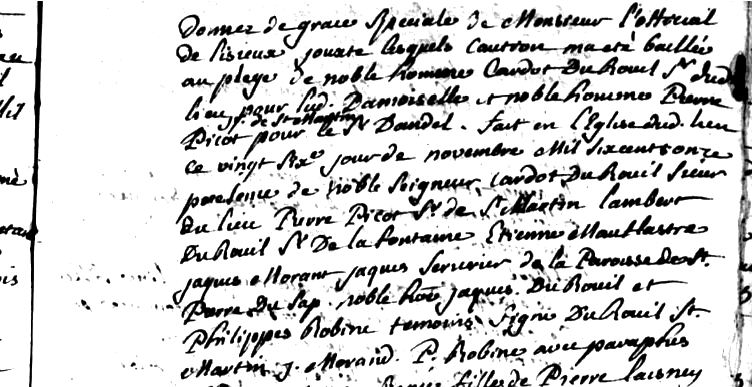 donnez de grace speciale de Monsieur l'official
de Lisieux jouxte lesquels caution ma eté baillée
au plege de noble homme Cardot Du Rouil Sr dud.
lieu pour lad. Damoiselle et noble homme Pierre
Sr. de St Martin
Picot pour le Sr Dandel. fait en l'Eglise dud. lieu
ce vingt sixe jour de novembre Mil six cents onze
presence de noble Seigneur Cardot Du Rouil Sieur
du lieu Pierre Picot Sr de St Martin Lambert
Du Rouil Sr De la fontaine Etienne
Jaques Morant Jaques Serurier de la Paroisse de St.
Pierre Du Sap. noble hoe Jaques Du Rouil et
Philippes Robine temoins Signé Du Rouil St
Martin J. Moraud. P. Robine avec paraphes
filles de Pierre Laisney